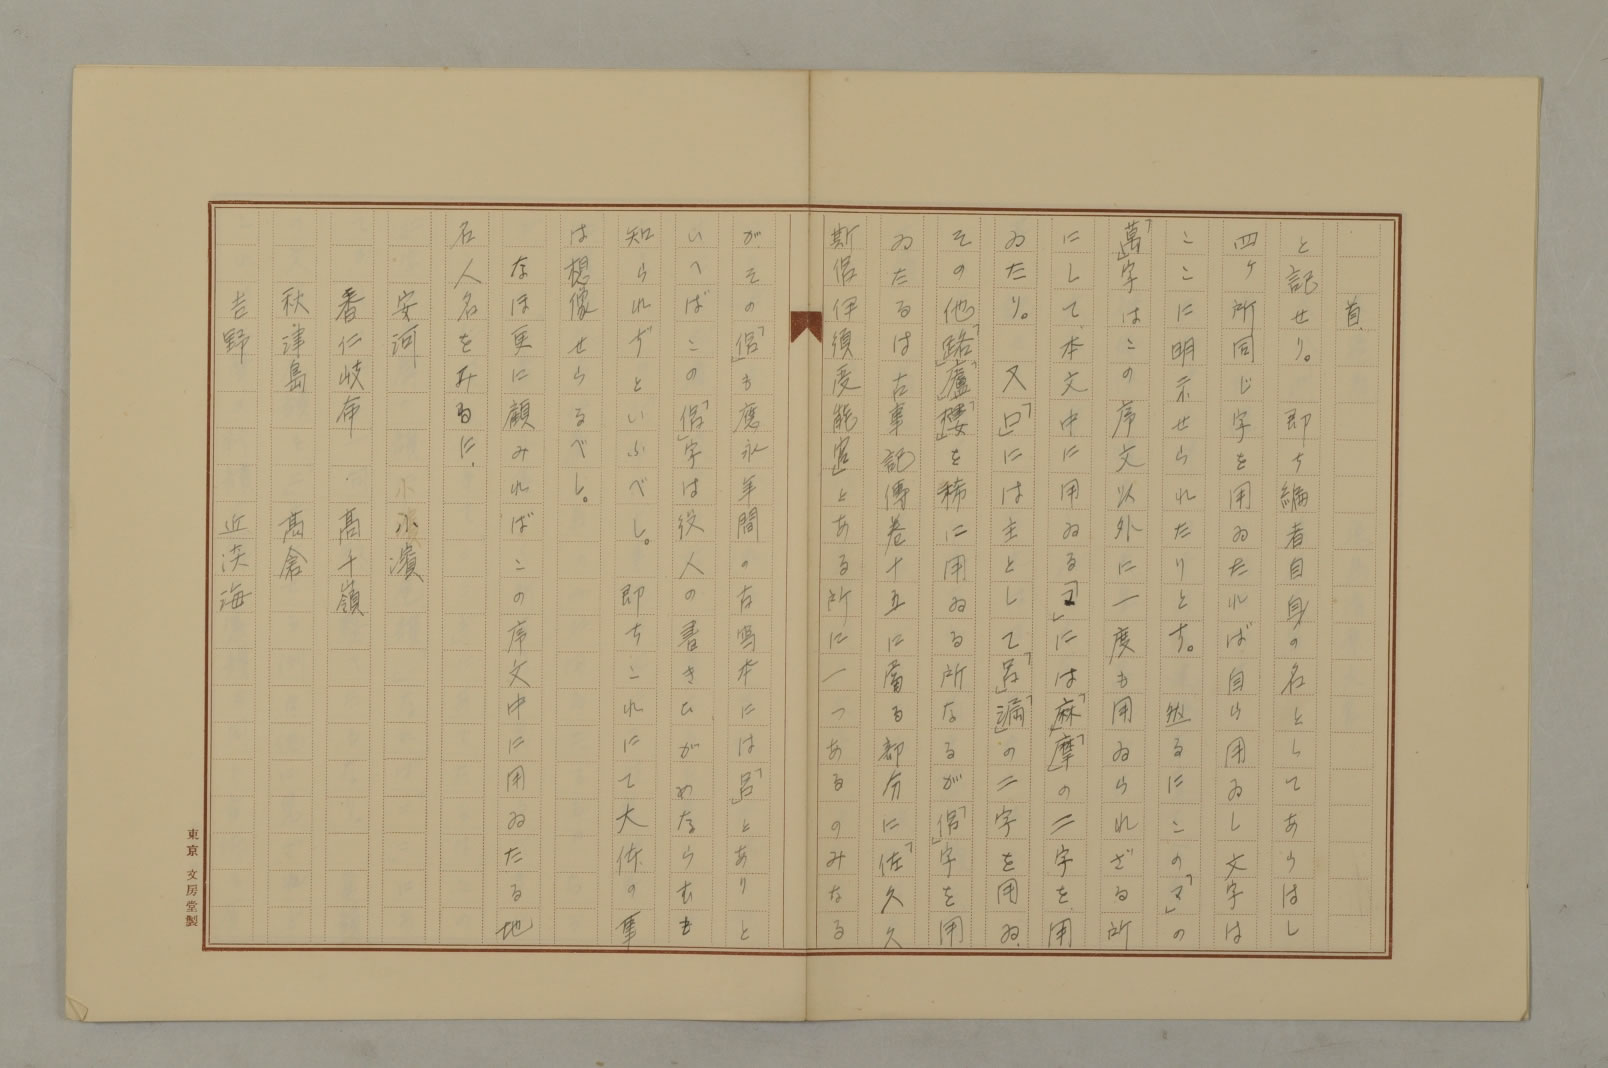 首、
と記せり。即ち編者自身の名としてあらはし
四ヶ所同じ字を用ゐたれば自ら用ゐし文字は
ここに明示せられたりとす。然るにこの「マ」の
「萬」字はこの序文以外に一度も用ゐられざる所
にして、本文中に用ゐる「マ」には「麻」「摩」の二字を用
ゐたり。又「ロ」には主として「呂」「漏」の二字を用ゐ、
その他「路」「盧」「樓」を稀に用ゐる所なるが「侶」字を用
ゐたるは古事記傳巻十五に當る部分に「佐久久
斯侶伊須受能宮」とある所に一つあるのみなる
がその「侶」も應永年間の古寫本には「呂」とありと
いへばこの「侶」字は後人の書きひがめならむも
知られずといふべし。即ちこれにて大体の事
は想像せらるべし。
なほ更に顧みればこの序文中に用ゐたる地
名人名をみるに、
安河　小濱
番仁岐命　高千嶺
秋津島　高倉
吉野　近淡海
東京 文房堂製